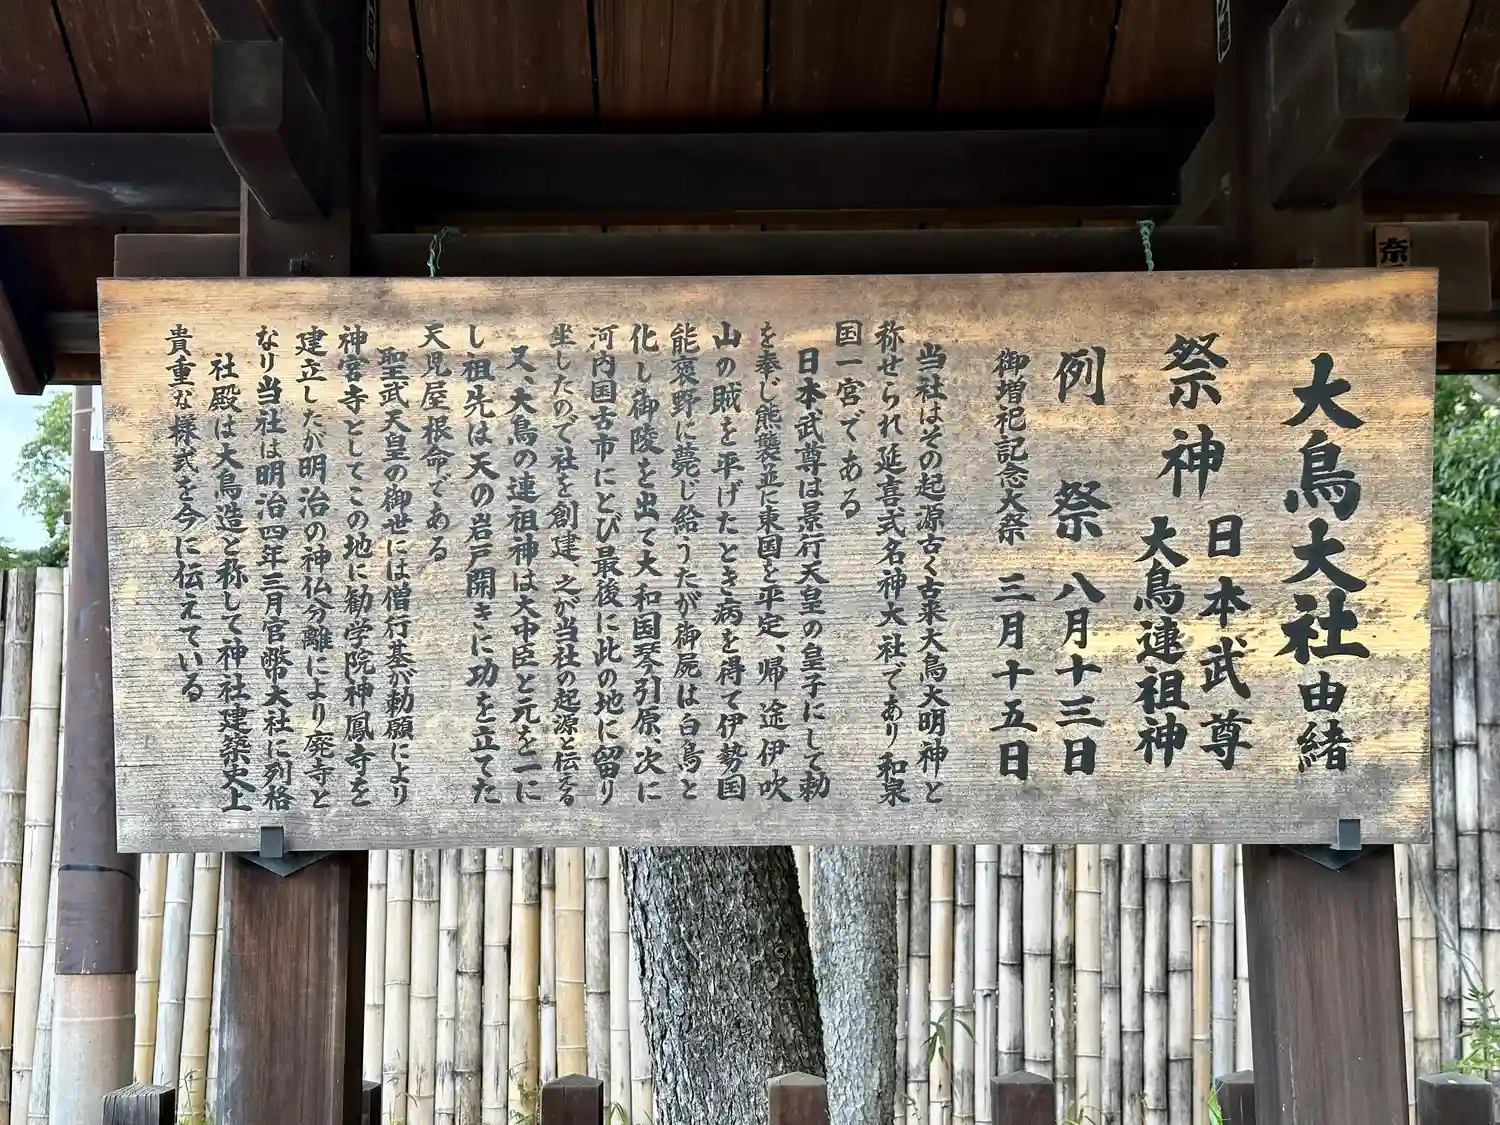 大鳥大社由緒
祭神 日本武尊
大鳥連祖神
例祭 八月十三日
御増祀記念大祭 三月十五日
当社はその起源古く古来大鳥大明神と
称せられ延喜式名神大社であり和泉
国一宮である
日本武尊は景行天皇の皇子にして勅
を奉じ熊襲並に東国を平定、帰途伊吹
山の賊を平げたとき病を得て伊勢国
能褒野に薨じ給うたが御屍は白鳥と
化し御陵を出て大和国琴引原、次に
河内国古市にとび最後に此の地に留り
坐したので社を創建、之が当社の起源と伝える
又、大鳥の連祖神は大中臣と元を一に
し祖先は天の岩戸開きに功を立てた
天児屋根命である
聖武天皇の御世には僧行基が勅願により
神宮寺としてこの地に勧学院神鳳寺を
建立したが明治の神仏分離により廃寺と
なり当社は明治四年三月官幣大社に列格
社殿は大鳥造と称して神社建築史上
貴重な様式を今に伝えている